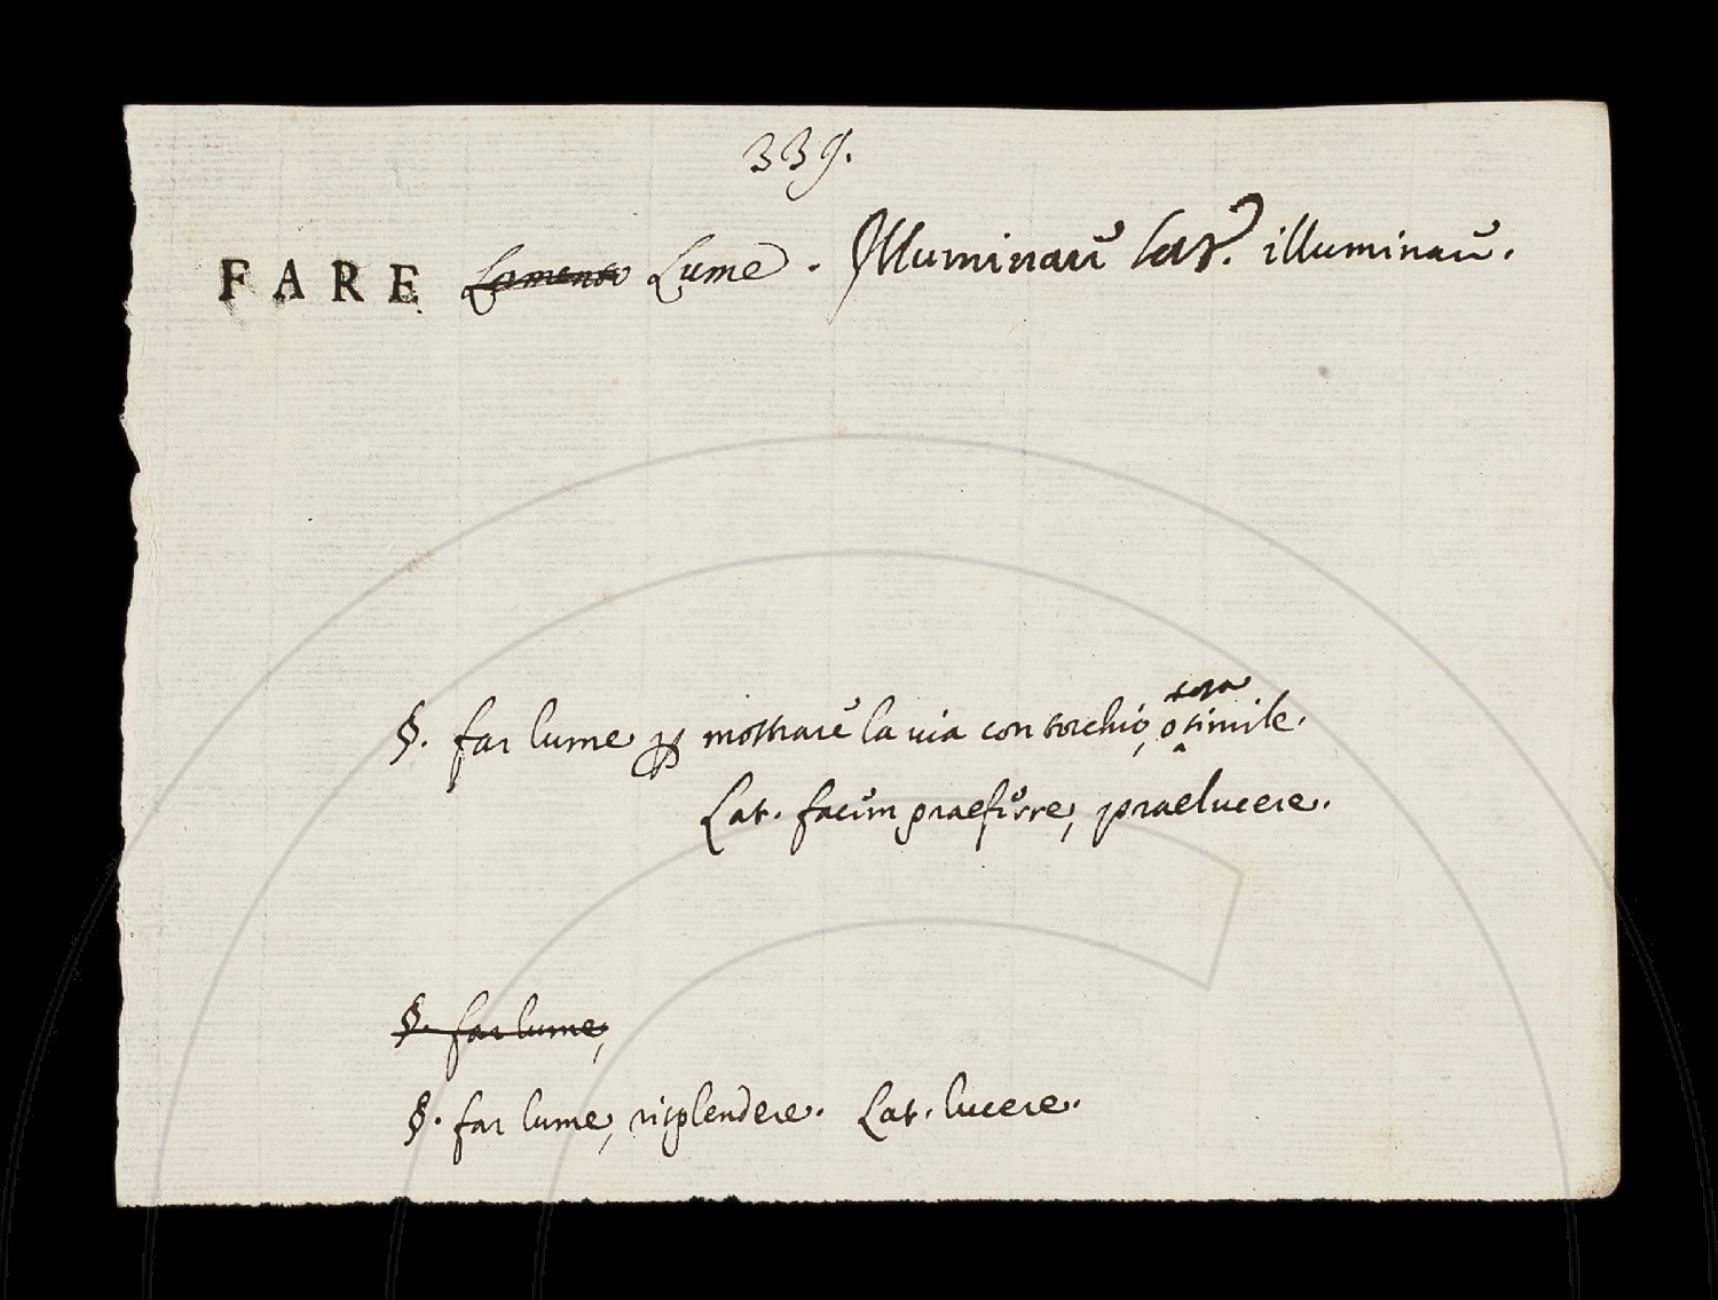 339.
FARE Lamento Lume. Illuminare lat. illuminare.
§. far lume p mostrare la via con torchio, o tosa simile.
Lat. facem praeferre, praelucere.
§. far lume,
§. far lume, risplendere. Lat. lucere.